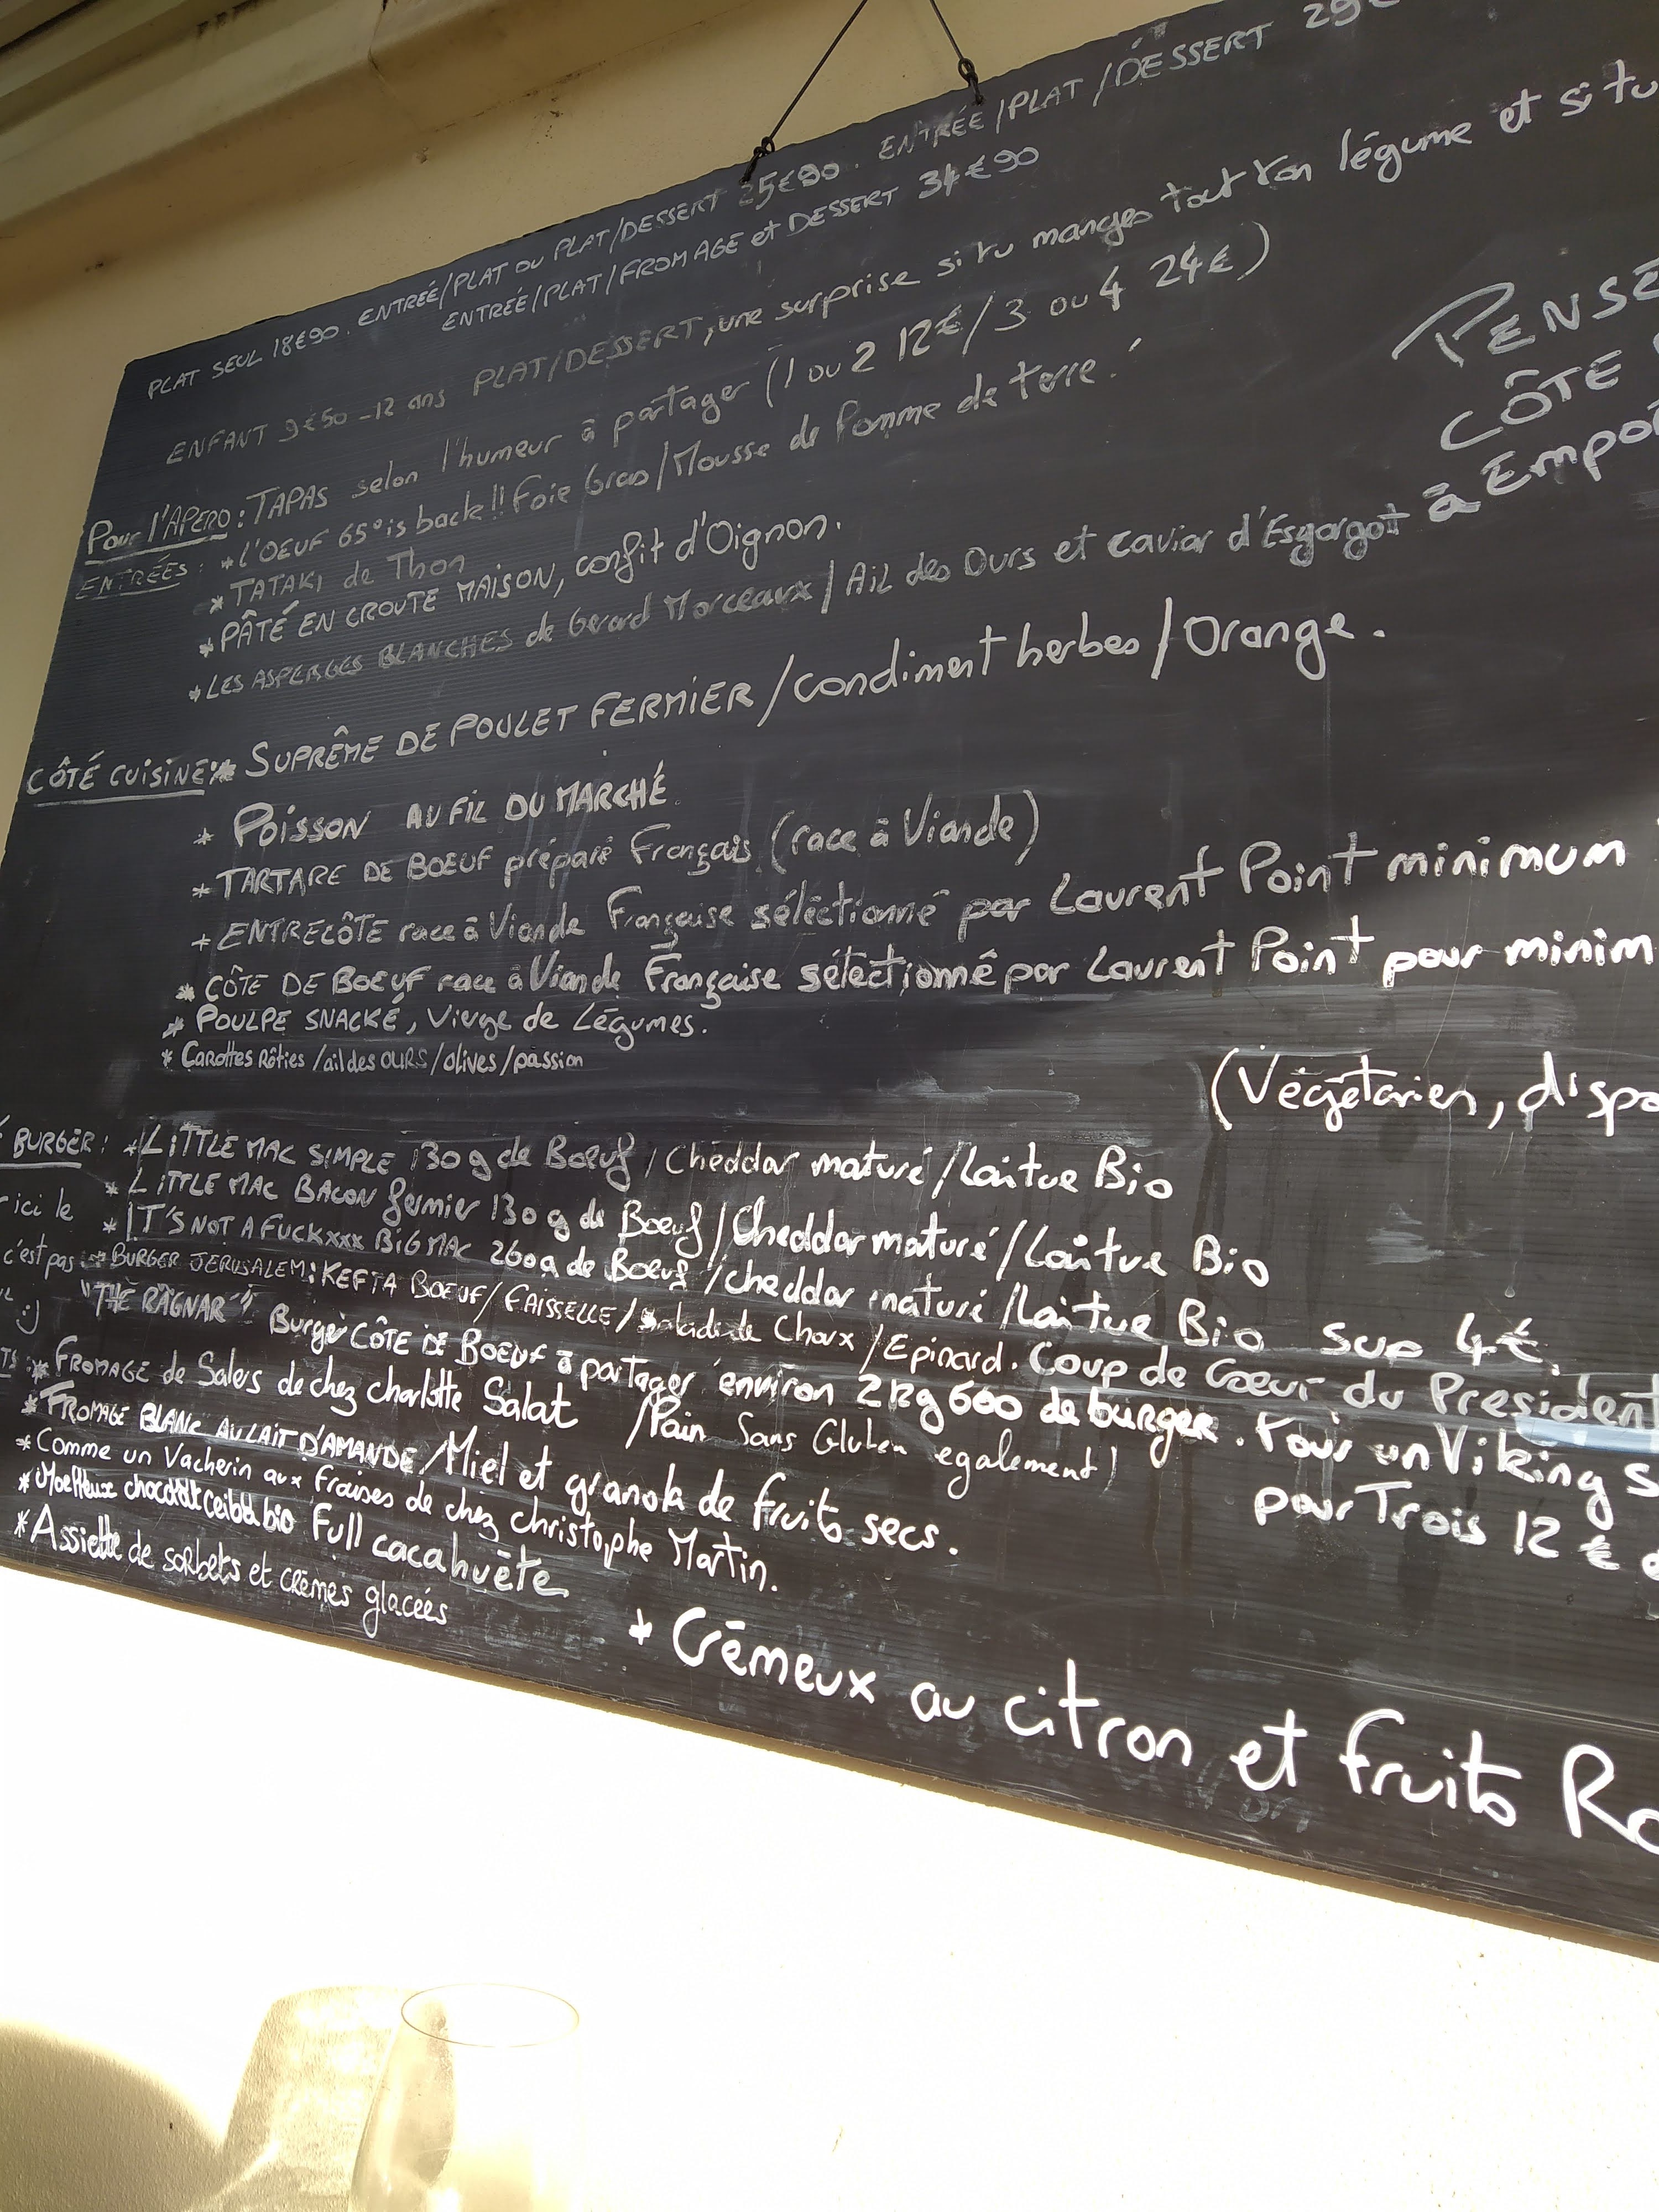 PLAT SEUL 18€90. ENTRÉE/PLAT OU PLAT/DESSERT 25€90. ENTRÉE/PLAT/DESSERT 29€
ENTRÉE/PLAT/FROMAGE et DESSERT 34€90
ENFANT 9€50 -12 ans PLAT/DESSERT, une surprise si tu manges tout ton légume et si tu
Pour l'APERO: TAPAS selon l'humeur à partager (1 ou 2 12€/3 ou 4 24€)
ENTRÉES: * L'OEUF 65° is back!! Foie Gras/Mousse de Pomme de terre!
* TATAKI de Thon
* PÂTÉ EN CROUTE MAISON, confit d'Oignon.
* LES ASPERGES BLANCHES de Gerard Morceaux/Ail des Ours et caviar d'Esgargot
PENSE
CÔTE
à Empo
CÔTÉ CUISINE: * SUPRÊME DE POULET FERMIER/condiment herbes/Orange.
* POISSON AU FIL DU MARCHÉ
* TARTARE DE BOEUF préparé Français (race à Viande)
* ENTRECÔTE race à Viande Française sélèctionné par Laurent Point minimum
* CÔTE DE BOEUF race à Viande Française sélectionné par Laurent Point pour minim
* POULPE SNACKÉ, Vierge de Légumes.
* Carottes Rôties/ail des OURS/olives/passion
(Végétarien, dispo
BURGER: * LITTLE MAC SIMPLE 130g de Boeuf/Cheddar maturé/Laitue Bio
* LITTLE MAC BACON fermier 130g de Boeuf/Cheddar maturé/Laitue Bio
ici le * IT'S NOT A FUCKXXX BIG MAC 260g de Boeuf/cheddar maturé/Laitue Bio sup 4€.
c'est pas * BURGER JERUSALEM: KEFTA BOEUF/FAISSELLE/Salade de Choux/Epinard. Coup de Coeur du President
:) "THE RAGNAR" Burger CÔTE DE BOEUF à partager environ 2kg600 de burger. Pour un Viking s
/Pain Sans Gluten egalement)
pour Trois 12€
TS: * FROMAGE de Salers de chez charlotte Salat
* FROMAGE BLANC AU LAIT D'AMANDE/Miel et granola de fruits secs.
* Comme un Vacherin aux Fraises de chez christophe Martin.
* Moelleux chocolat ceiba bio Full cacahuète
* Assiette de sorbets et crèmes glacées
* Crémeux au citron et fruits Ro